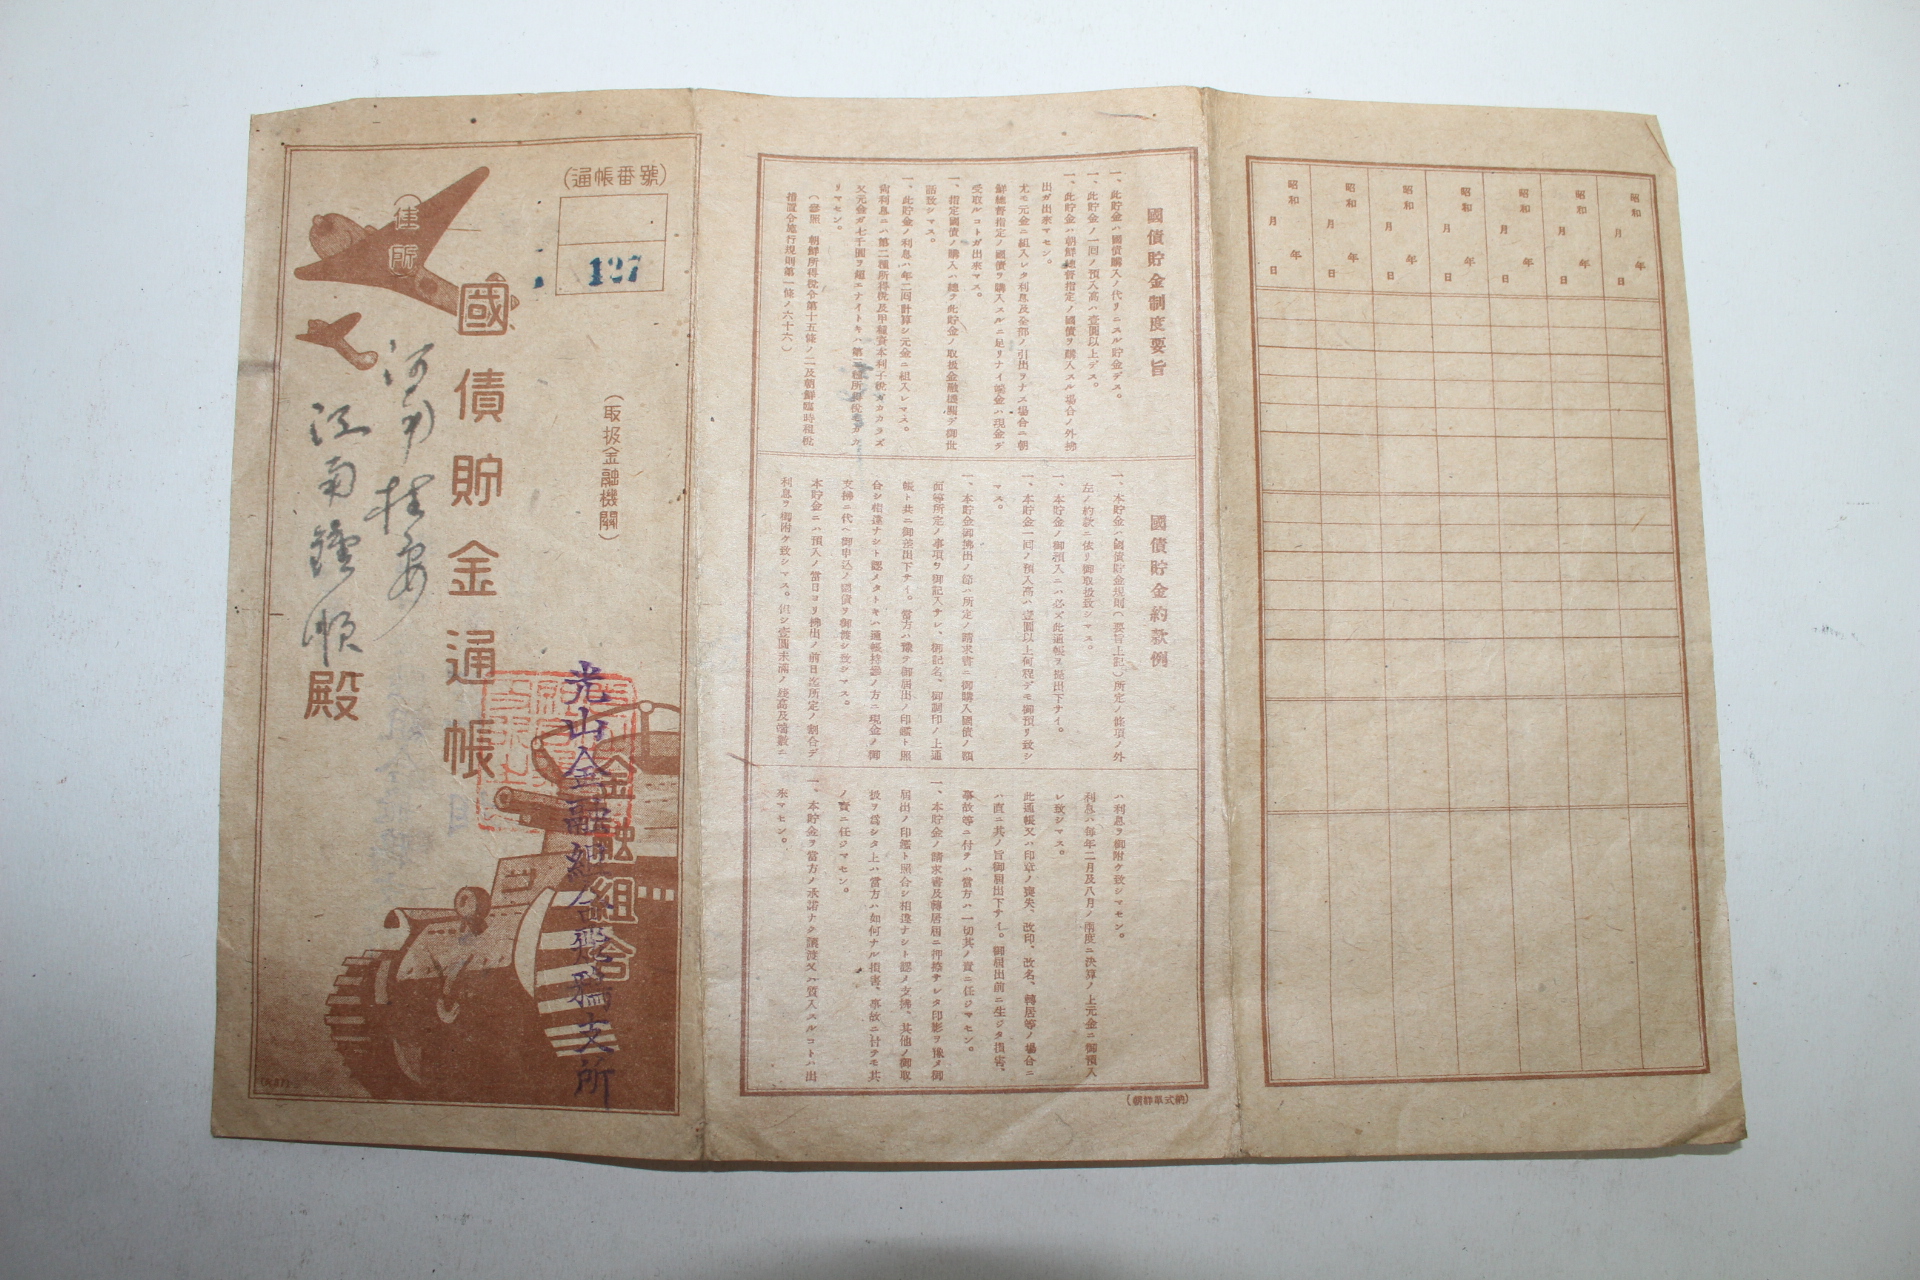 (通帳番號)
127
(住所)
國債貯金通帳
(取扱金融機關)
光山金融組合飛鴉支所
金融組合
河南桂安
江南鍾順殿
國債貯金制度要旨
一、此貯金ハ國債購入ノ代リニスル貯金デス。
一、此貯金ノ一回ノ預入高ハ壹圓以上デス。
一、此貯金ハ朝鮮總督指定ノ國債ヲ購入スル場合ノ外拂
出ガ出來マセン。
尤モ元金ニ組入レタ利息及全部ノ引出ヲナス場合ニ朝
鮮總督指定ノ國債ヲ購入スルニ足リナイ端金ハ現金デ
受取ルコトガ出來マス。
一、指定國債ノ購入ハ總テ此貯金ノ取扱金融機關デ御世
話致シマス。
一、此貯金ノ利息ハ年二回計算シ元金ニ組入レマス。
尙利息ニハ第二種所得稅及甲種資本利子稅ガカカラズ
又元金ガ七千圓ヲ超エナイトキハ第三種所得稅モカカ
リマセン。
(參照 朝鮮所得稅令第十五條ノ二及朝鮮臨時租稅
措置令施行規則第一條ノ六十六)
國債貯金約款例
一、本貯金ハ國債貯金規則(要旨上記)所定ノ條項ノ外
左ノ約款ニ依リ御取扱致シマス。
一、本貯金ノ御預入ニハ必ズ此通帳ヲ提出下サイ。
一、本貯金一回ノ預入高ハ壹圓以上何程デモ御預リ致シ
マス。
一、本貯金御拂出ノ節ハ所定ノ請求書ニ御購入國債ノ額
面等所定ノ事項ヲ御記入サレ、御記名、御調印ノ上通
帳ト共ニ御差出下サイ。當方ハ豫テ御届出ノ印鑑ト照
合シ相違ナシト認メタトキハ通帳持參ノ方ニ現金ノ御
支拂ニ代ヘ御申込ノ國債ヲ御渡シ致シマス。
本貯金ニハ預入ノ當日ヨリ拂出ノ前日迄所定ノ割合デ
利息ヲ御附ケ致シマス。但シ壹圓未滿ノ殘高及端數ニ
ハ利息ヲ御附ケ致シマセン。
利息ハ每年二月及八月ノ兩度ニ決算ノ上元金ニ御預入
レ致シマス。
此通帳又ハ印章ノ喪失、改印、改名、轉居等ノ場合ニ
ハ直ニ其ノ旨御届出下サイ。御届出前ニ生ジタ損害、
事故等ニ付テハ當方ハ一切其ノ責ニ任ジマセン。
一、本貯金ノ請求書及轉居届ニ押捺サレタ印影ヲ豫メ御
届出ノ印鑑ト照合シ相違ナシト認メ支拂、其他ノ御取
扱ヲ爲シタ上ハ當方ハ如何ナル損害、事故ニ付テモ其
ノ責ニ任ジマセン。
一、本貯金ヲ當方ノ承諾ナク讓渡又ハ質入スルコトハ出
來マセン。
(朝鮮單式納)
昭和 年 月 日
昭和 年 月 日
昭和 年 月 日
昭和 年 月 日
昭和 年 月 日
昭和 年 月 日
昭和 年 月 日